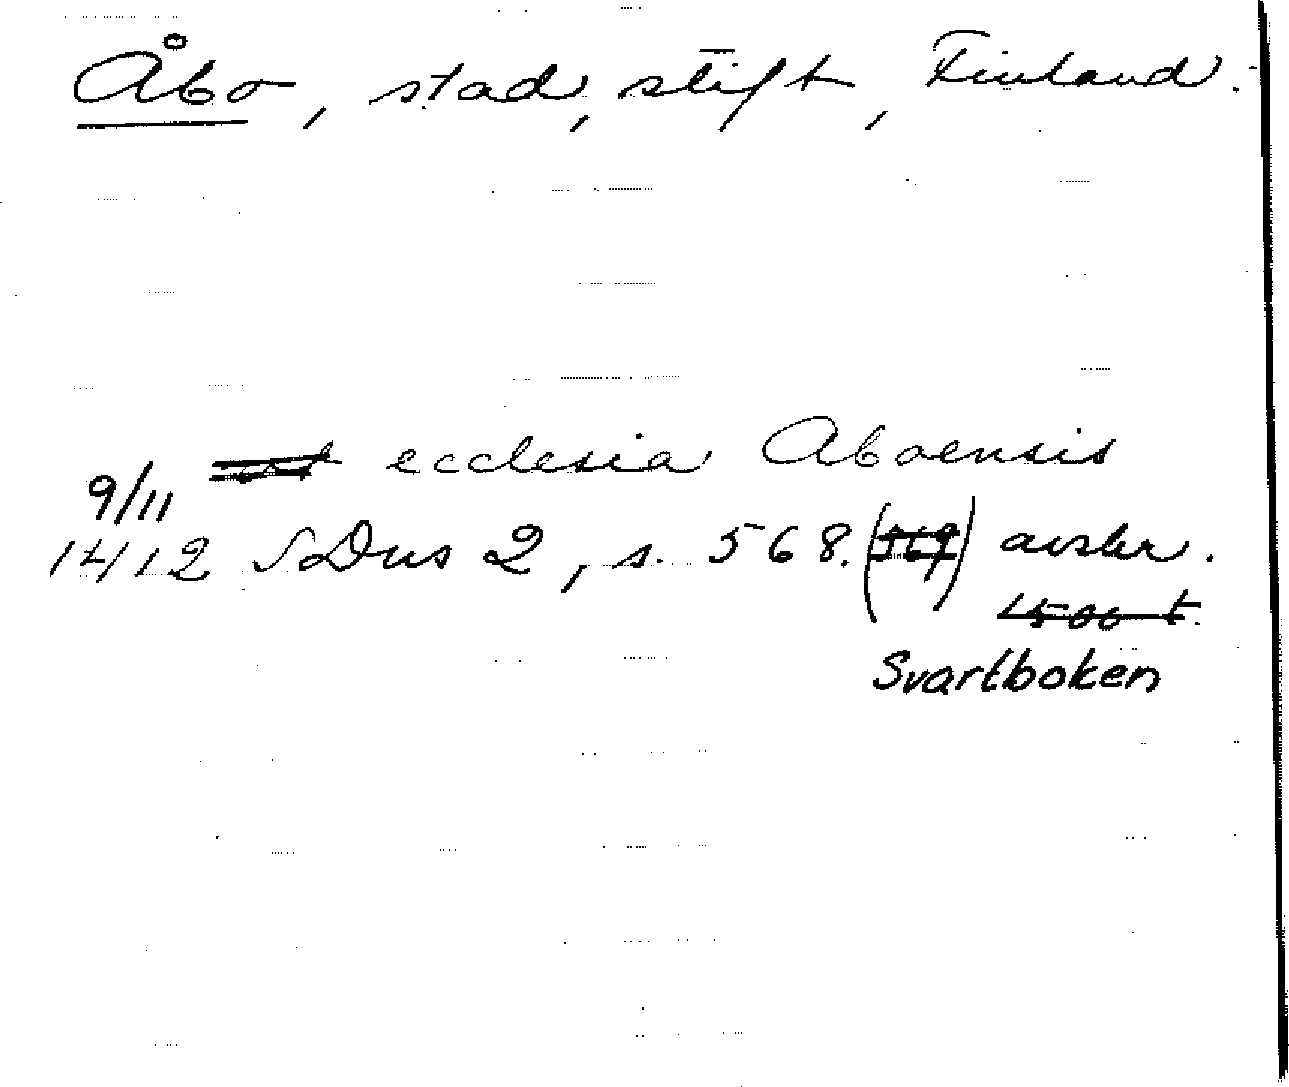 Åbo, stad, stift, Finland.
ecclesia Aboensis
9/11
1412 SDns 2, s. 568. (569) avskr.
1500 t.
Svartboken